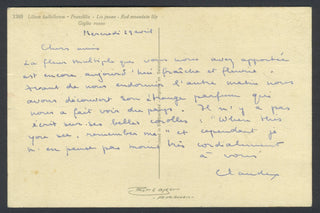 1365 Lilium bulbiferum - Feuerlilie - Lis jaune - Red mountain lily
Giglio rosso
Mercredi 29 avril
Chers amis
La fleur multiple que vous nous avez apportée
est encore aujourd'hui fraîche et fleurie.
avant de nous endormir l'autre matin nous
avons découvert son étrange parfum qui
nous a fait voir du pays. Il n'y a pas
écrit sur ses belles corolles : "When this
you see, remember me" et cependant je
n'en pense pas moins très cordialement
à vous
Claude